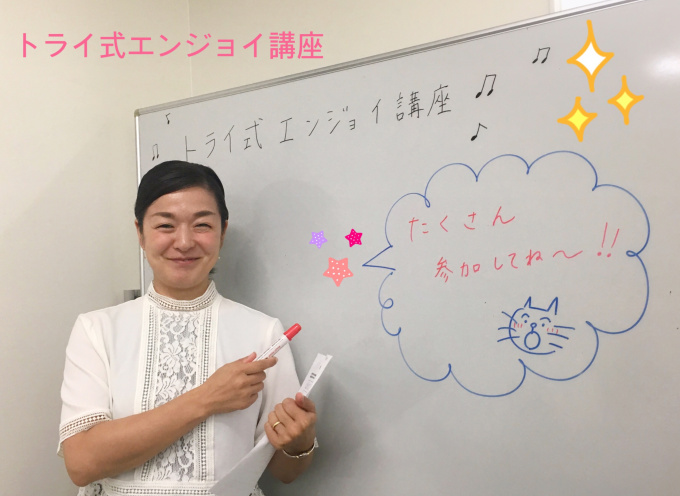 トライ式エンジョイ講座
トライ式エンジョイ講座
たくさん
参加してね〜!!